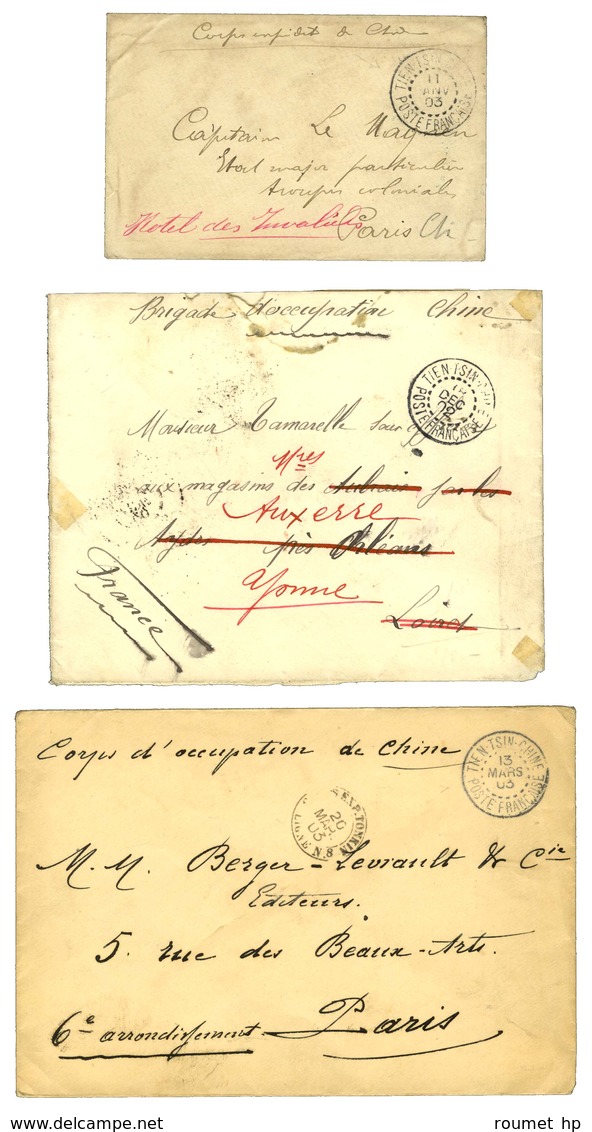 Corps expédit de Chine
TIEN-TSIN-CHINE
11
JANV
03
POSTE FRANÇAISE
Capitaine Le
Etat major particulier
troupes coloniales
Hotel des Invalides Paris
Brigade d'occupation Chine
TIEN-TSIN-CHINE
DEC
POSTE FRANÇAISE
Monsieur Camarelle sous
Mres
aux magasins des Aubrais
Auxerre
Aydes près Orléans
Yonne
Loiret
France
Corps d'occupation de Chine
TIEN-TSIN-CHINE
13
MARS
03
POSTE FRANÇAISE
EXP. TONKIN
20
MARS
03
LIGNE N. 8
M. M. Berger-Levrault & Cie
Editeurs.
5. rue des Beaux-Arts.
6e arrondissement Paris
© roumet hp